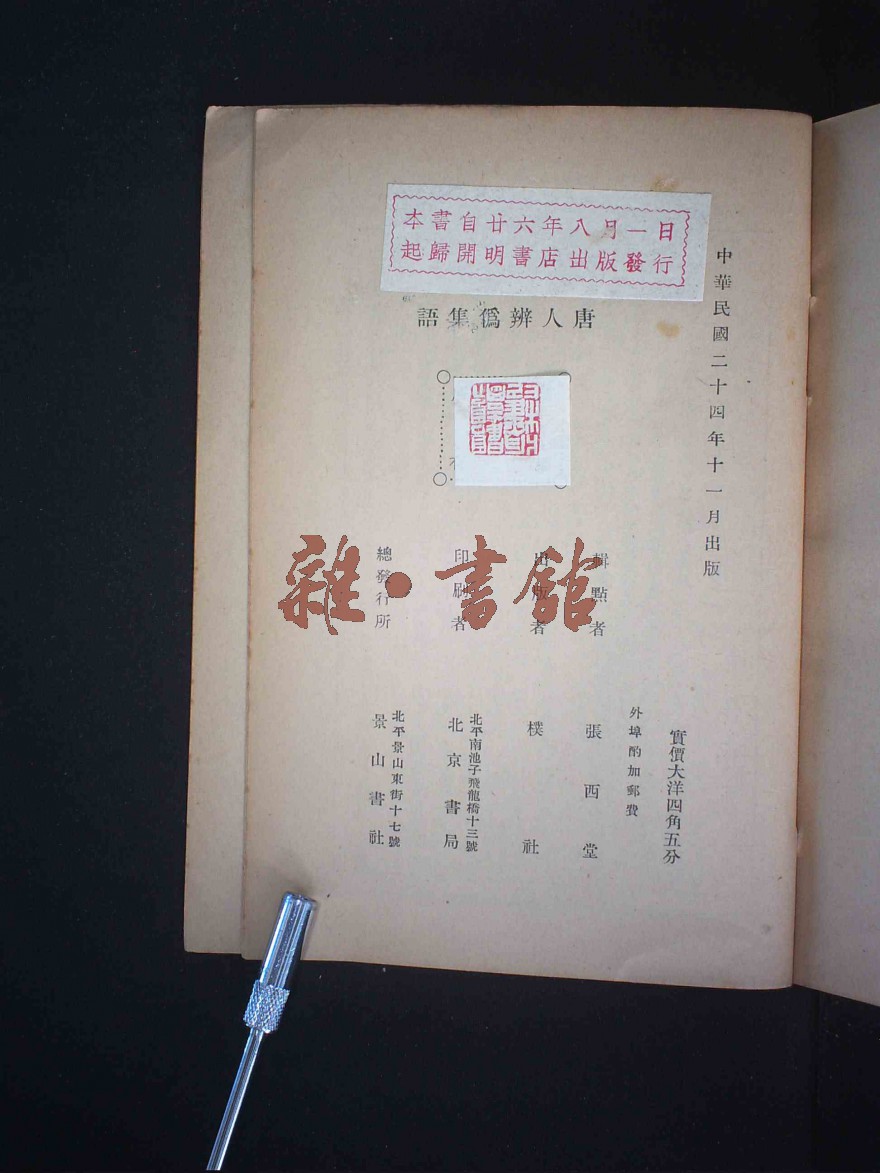 本書自廿六年八月一日
起歸開明書店出版發行
中華民國二十四年十一月出版
唐人辨僞集語
實價大洋四角五分
外埠酌加郵費
輯點者
張西堂
出版者
樸社
印刷者
北平南池子飛龍橋十三號
北京書局
總發行所
北平景山東街十七號
景山書社
雜·書館